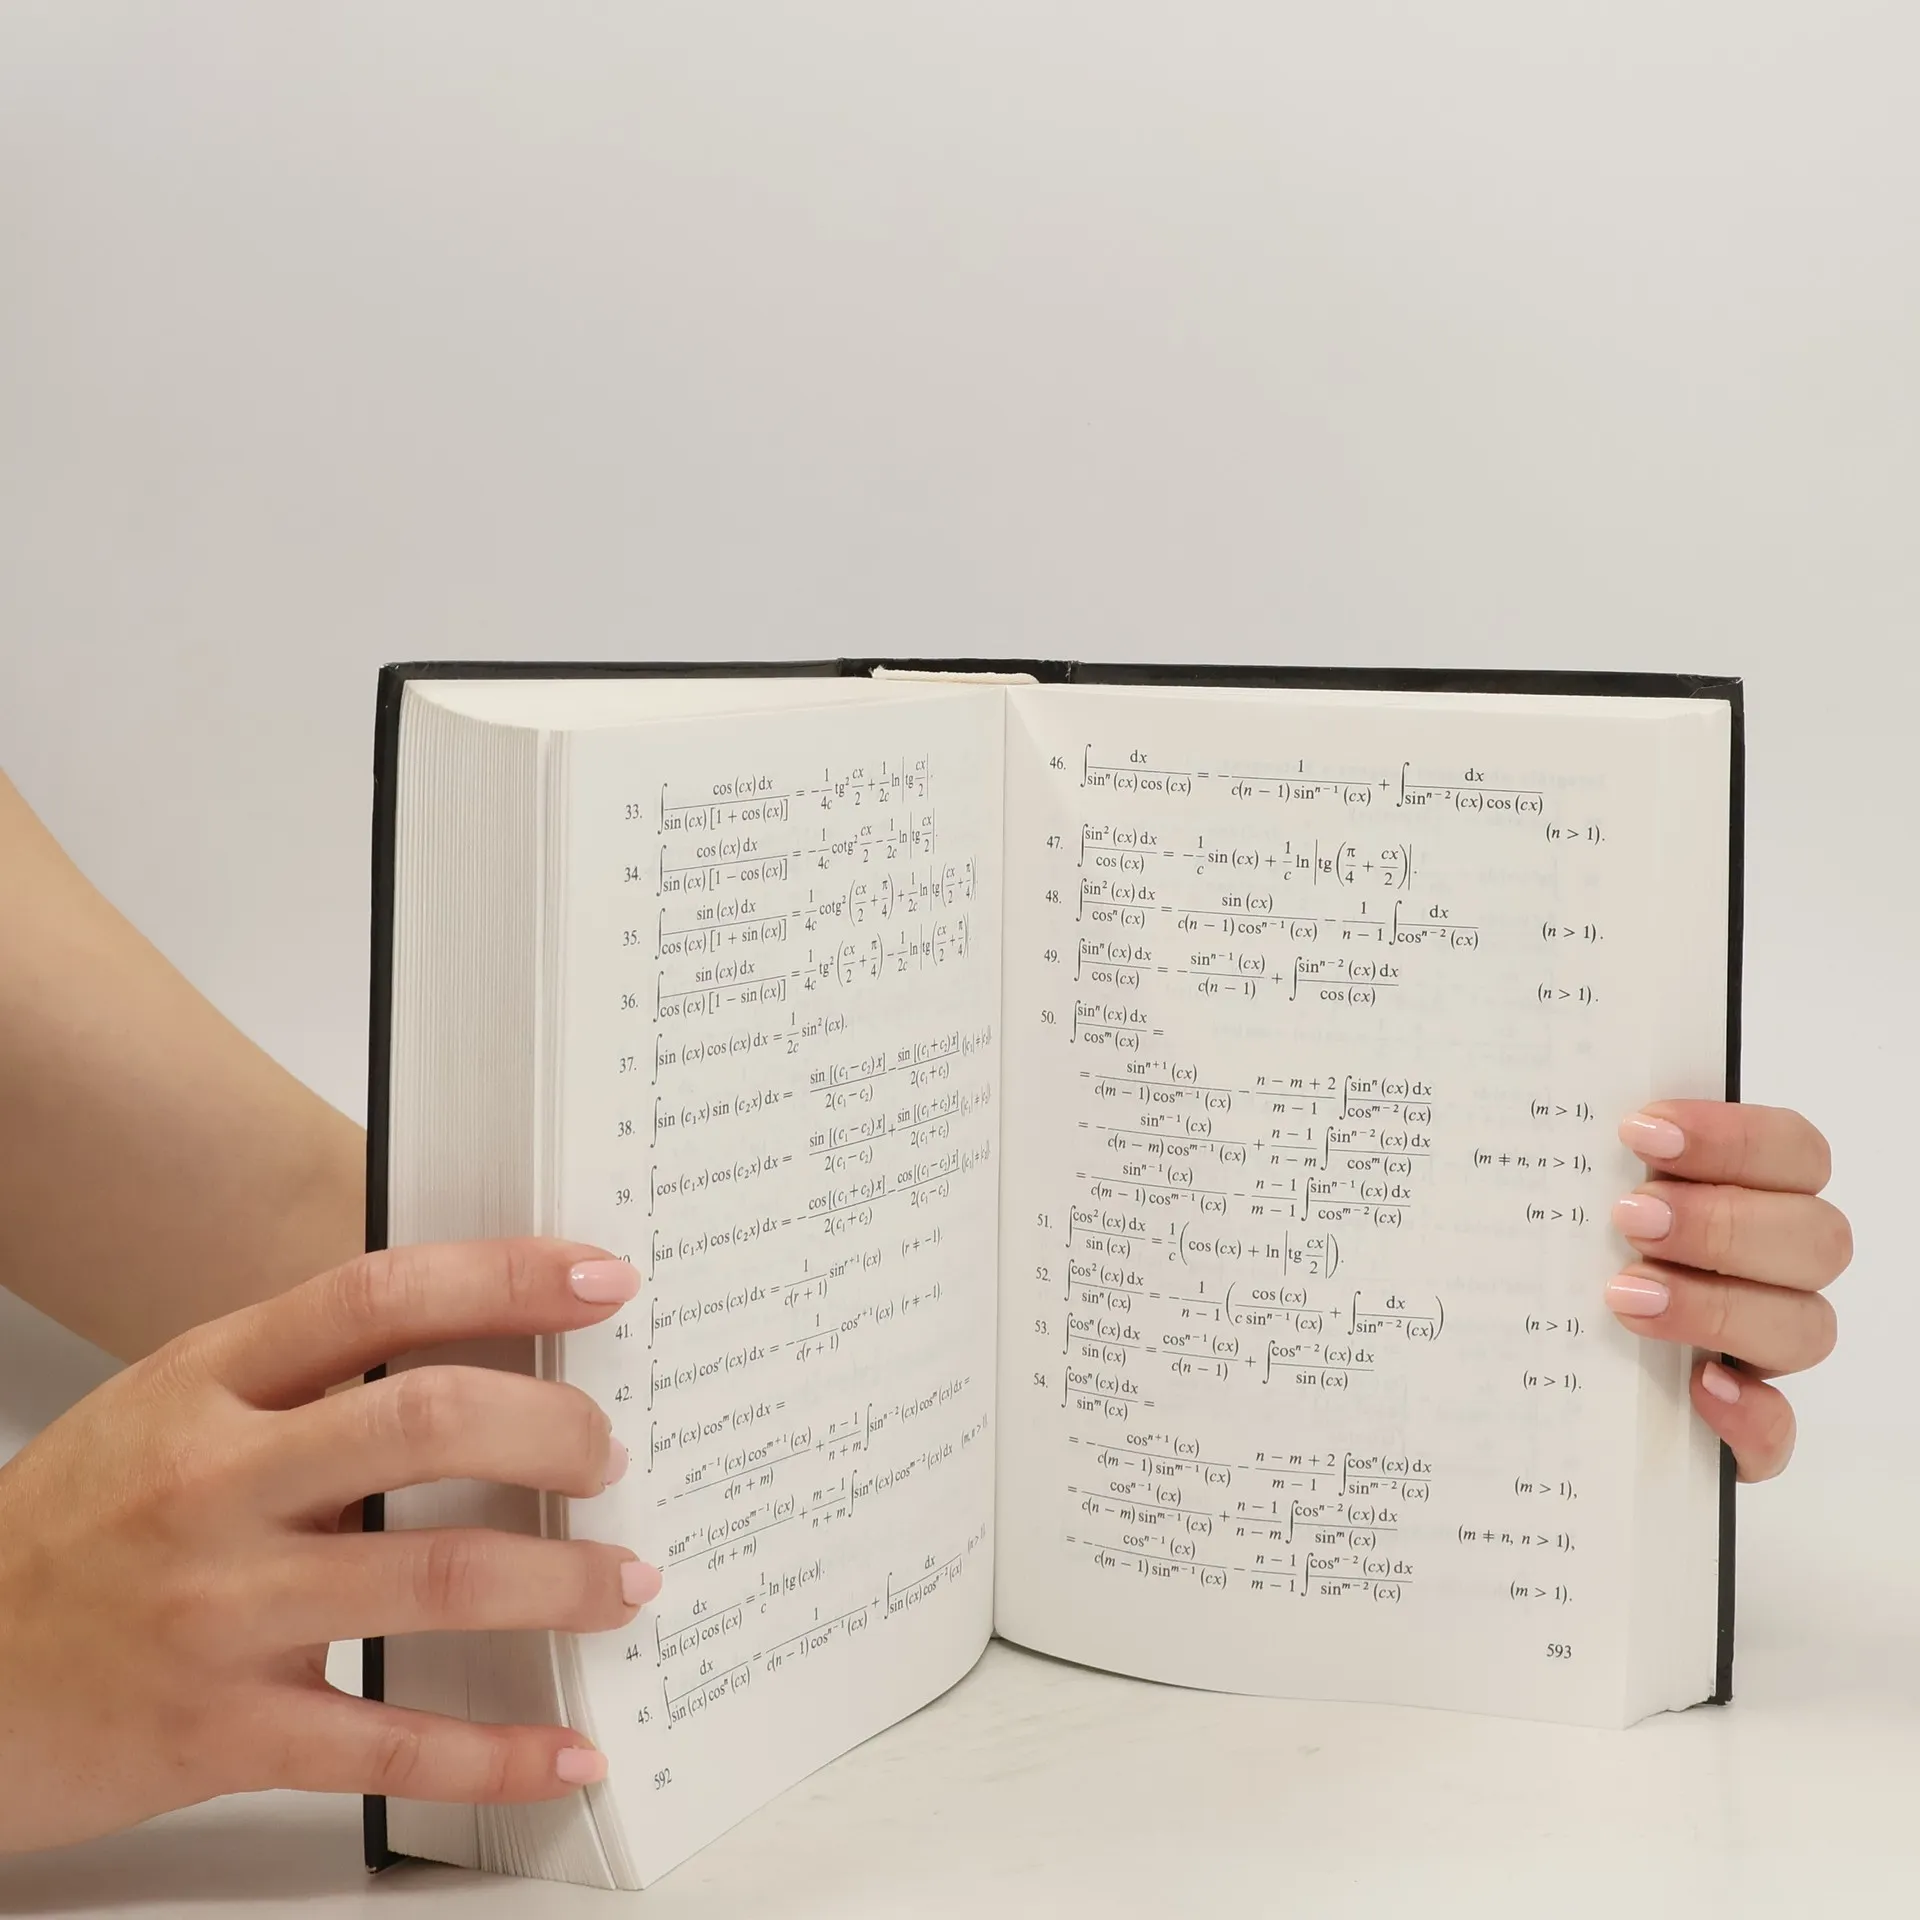 33. ∫ cos (cx) dx / sin (cx) [1 + cos (cx)] = − 1/4c tg² cx/2 + 1/2c ln |tg cx/2|.
34. ∫ cos (cx) dx / sin (cx) [1 − cos (cx)] = − 1/4c cotg² cx/2 − 1/2c ln |tg cx/2|.
35. ∫ sin (cx) dx / cos (cx) [1 + sin (cx)] = 1/4c cotg² (cx/2 + π/4) + 1/2c ln |tg (cx/2 + π/4)|
36. ∫ sin (cx) dx / cos (cx) [1 − sin (cx)] = 1/4c tg² (cx/2 + π/4) − 1/2c ln |tg (cx/2 + π/4)|
37. ∫ sin (cx) cos (cx) dx = 1/2c sin² (cx).
38. ∫ sin (c₁x) sin (c₂x) dx = sin [(c₁ − c₂) x] / 2(c₁ − c₂) − sin [(c₁ + c₂) x] / 2(c₁ + c₂) (|c₁| ≠ |c₂|).
39. ∫ cos (c₁x) cos (c₂x) dx = sin [(c₁ − c₂) x] / 2(c₁ − c₂) + sin [(c₁ + c₂) x] / 2(c₁ + c₂) (|c₁| ≠ |c₂|).
∫ sin (c₁x) cos (c₂x) dx = − cos [(c₁ + c₂) x] / 2(c₁ + c₂) − cos [(c₁ − c₂) x] / 2(c₁ − c₂) (|c₁| ≠ |c₂|).
41. ∫ sinʳ (cx) cos (cx) dx = 1 / c(r + 1) sinʳ⁺¹ (cx) (r ≠ −1).
42. ∫ sin (cx) cosʳ (cx) dx = − 1 / c(r + 1) cosʳ⁺¹ (cx) (r ≠ −1).
∫ sinⁿ (cx) cosᵐ (cx) dx =
= − sinⁿ⁻¹ (cx) cosᵐ⁺¹ (cx) / c(n + m) + n − 1 / n + m ∫ sinⁿ⁻² (cx) cosᵐ (cx) dx =
= sinⁿ⁺¹ (cx) cosᵐ⁻¹ (cx) / c(n + m) + m − 1 / n + m ∫ sinⁿ (cx) cosᵐ⁻² (cx) dx (m, n > 1).
44. ∫ dx / sin (cx) cos (cx) = 1/c ln |tg (cx)|.
45. ∫ dx / sin (cx) cosⁿ (cx) = 1 / c(n − 1) cosⁿ⁻¹ (cx) + ∫ dx / sin (cx) cosⁿ⁻² (cx) (n > 1).
592
46. ∫ dx / sinⁿ (cx) cos (cx) = − 1 / c(n − 1) sinⁿ⁻¹ (cx) + ∫ dx / sinⁿ⁻² (cx) cos (cx)
(n > 1).
47. ∫ sin² (cx) dx / cos (cx) = − 1/c sin (cx) + 1/c ln |tg (π/4 + cx/2)|.
48. ∫ sin² (cx) dx / cosⁿ (cx) = sin (cx) / c(n − 1) cosⁿ⁻¹ (cx) − 1 / n − 1 ∫ dx / cosⁿ⁻² (cx) (n > 1).
49. ∫ sinⁿ (cx) dx / cos (cx) = − sinⁿ⁻¹ (cx) / c(n − 1) + ∫ sinⁿ⁻² (cx) dx / cos (cx) (n > 1).
50. ∫ sinⁿ (cx) dx / cosᵐ (cx) =
= sinⁿ⁺¹ (cx) / c(m − 1) cosᵐ⁻¹ (cx) − n − m + 2 / m − 1 ∫ sinⁿ (cx) dx / cosᵐ⁻² (cx) (m > 1),
= − sinⁿ⁻¹ (cx) / c(n − m) cosᵐ⁻¹ (cx) + n − 1 / n − m ∫ sinⁿ⁻² (cx) dx / cosᵐ (cx) (m ≠ n, n > 1),
= sinⁿ⁻¹ (cx) / c(m − 1) cosᵐ⁻¹ (cx) − n − 1 / m − 1 ∫ sinⁿ⁻¹ (cx) dx / cosᵐ⁻² (cx) (m > 1).
51. ∫ cos² (cx) dx / sin (cx) = 1/c (cos (cx) + ln |tg cx/2|).
52. ∫ cos² (cx) dx / sinⁿ (cx) = − 1 / n − 1 (cos (cx) / c sinⁿ⁻¹ (cx) + ∫ dx / sinⁿ⁻² (cx)) (n > 1).
53. ∫ cosⁿ (cx) dx / sin (cx) = cosⁿ⁻¹ (cx) / c(n − 1) + ∫ cosⁿ⁻² (cx) dx / sin (cx) (n > 1).
54. ∫ cosⁿ (cx) dx / sinᵐ (cx) =
= − cosⁿ⁺¹ (cx) / c(m − 1) sinᵐ⁻¹ (cx) − n − m + 2 / m − 1 ∫ cosⁿ (cx) dx / sinᵐ⁻² (cx) (m > 1),
= cosⁿ⁻¹ (cx) / c(n − m) sinᵐ⁻¹ (cx) + n − 1 / n − m ∫ cosⁿ⁻² (cx) dx / sinᵐ (cx) (m ≠ n, n > 1),
= − cosⁿ⁻¹ (cx) / c(m − 1) sinᵐ⁻¹ (cx) − n − 1 / m − 1 ∫ cosⁿ⁻² (cx) dx / sinᵐ⁻² (cx) (m > 1).
593